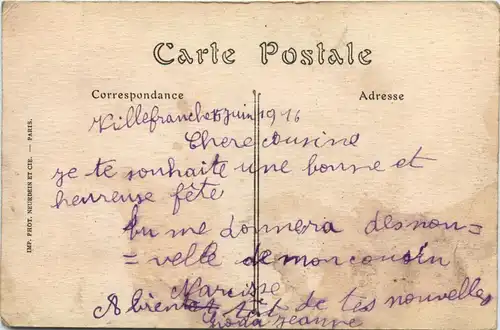 Carte Postale
Correspondance
Adresse
Villefranche 5 juin 1916
Chere cousine
je te souhaite une bonne et
heureuse fête
tu me donnera des nou=
=velle de mon cousin
Narcisse
A bientot de tes nouvelles
jeanne
IMP. PHOT. NEURDEIN ET CIE. — PARIS.